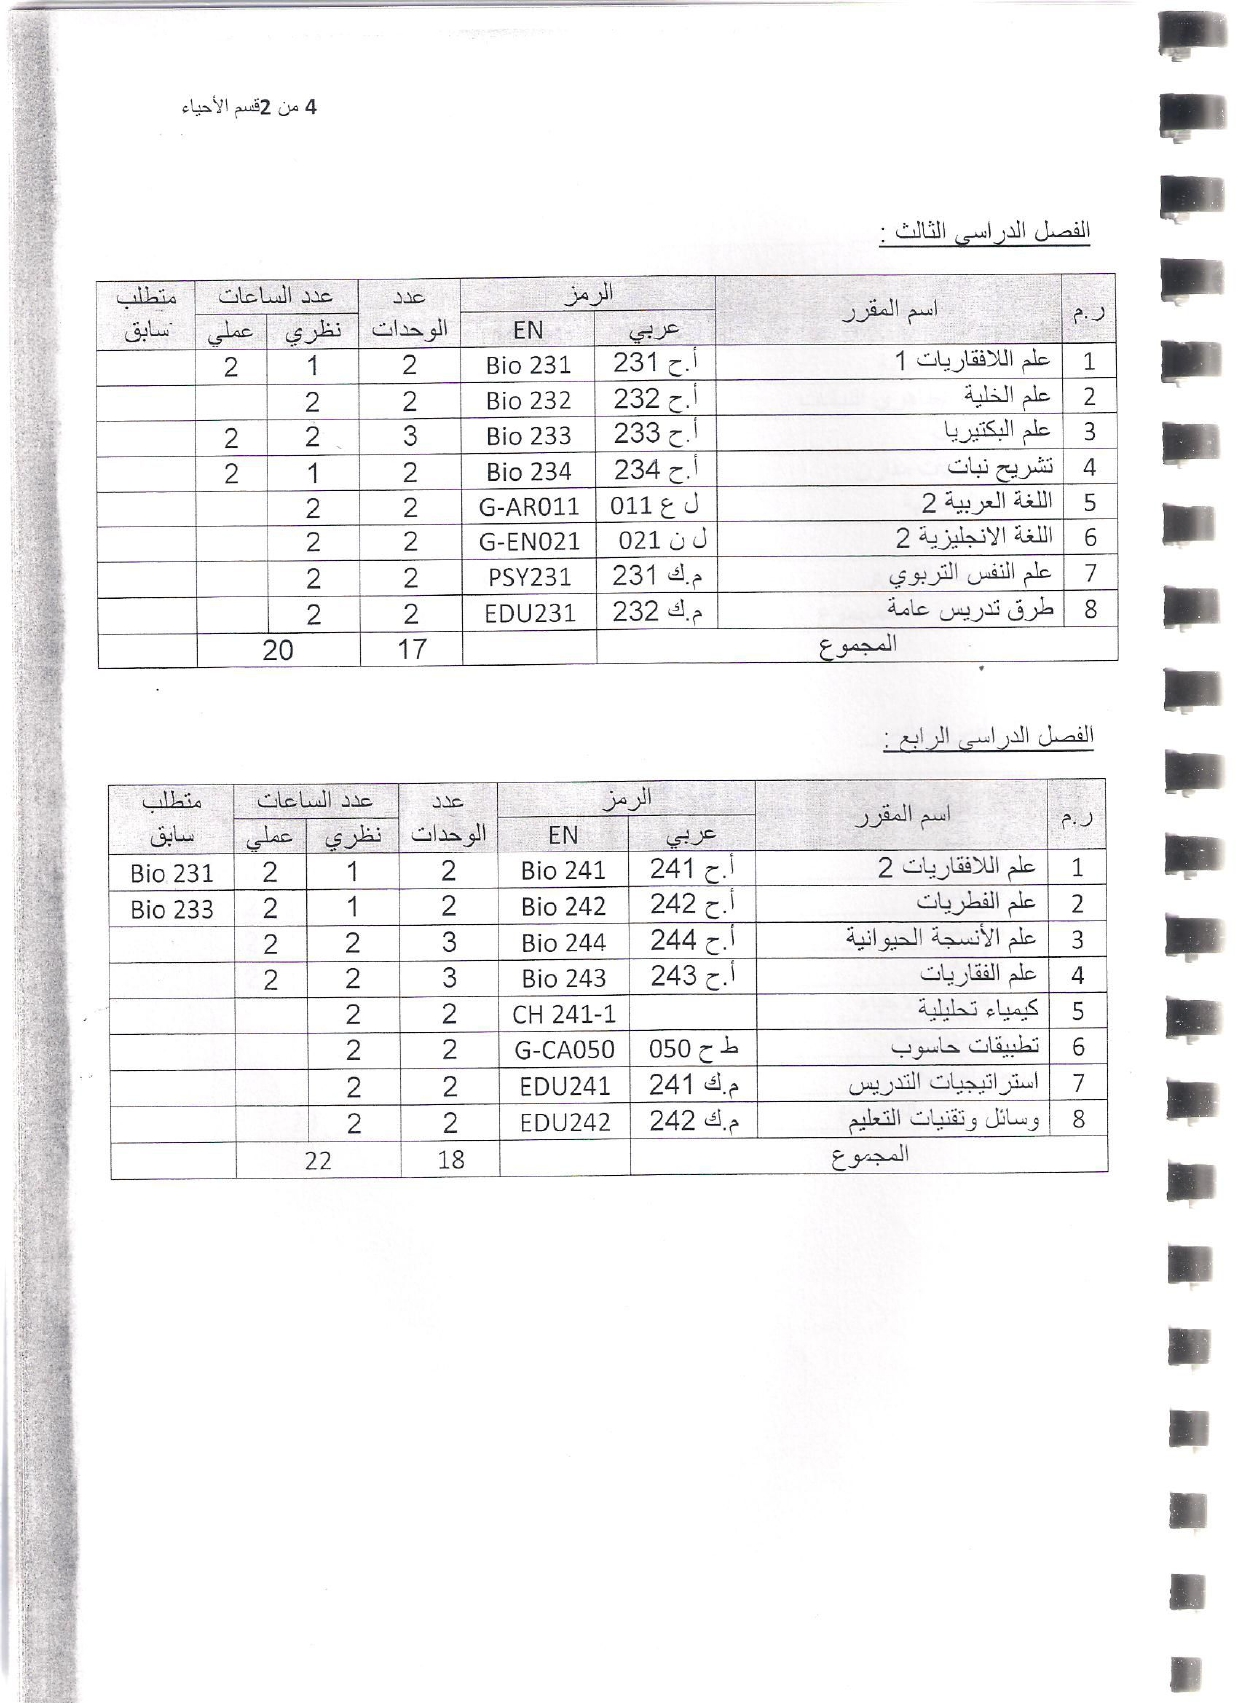 4 من 2قسم الأحياء
الفصل الدراسي الثالث :
ر.م اسم المقرر الرمز عدد الوحدات عدد الساعات متطلب سابق
عربي EN نظري عملي
1 علم اللافقاريات 1 أ.ح 231 Bio 231 2 1 2
2 علم الخلية أ.ح 232 Bio 232 2 2
3 علم البكتيريا أ.ح 233 Bio 233 3 2 2
4 تشريح نبات أ.ح 234 Bio 234 2 1 2
5 اللغة العربية 2 ل ع 011 G-AR011 2 2
6 اللغة الانجليزية 2 ل ن 021 G-EN021 2 2
7 علم النفس التربوي م.ك 231 PSY231 2 2
8 طرق تدريس عامة م.ك 232 EDU231 2 2
المجموع 17 20
الفصل الدراسي الرابع :
ر.م اسم المقرر الرمز عدد الوحدات عدد الساعات متطلب سابق
عربي EN نظري عملي
1 علم اللافقاريات 2 أ.ح 241 Bio 241 2 1 2 Bio 231
2 علم الفطريات أ.ح 242 Bio 242 2 1 2 Bio 233
3 علم الأنسجة الحيوانية أ.ح 244 Bio 244 3 2 2
4 علم الفقاريات أ.ح 243 Bio 243 3 2 2
5 كيمياء تحليلية CH 241-1 2 2
6 تطبيقات حاسوب ط ح 050 G-CA050 2 2
7 استراتيجيات التدريس م.ك 241 EDU241 2 2
8 وسائل وتقنيات التعليم م.ك 242 EDU242 2 2
المجموع 18 22